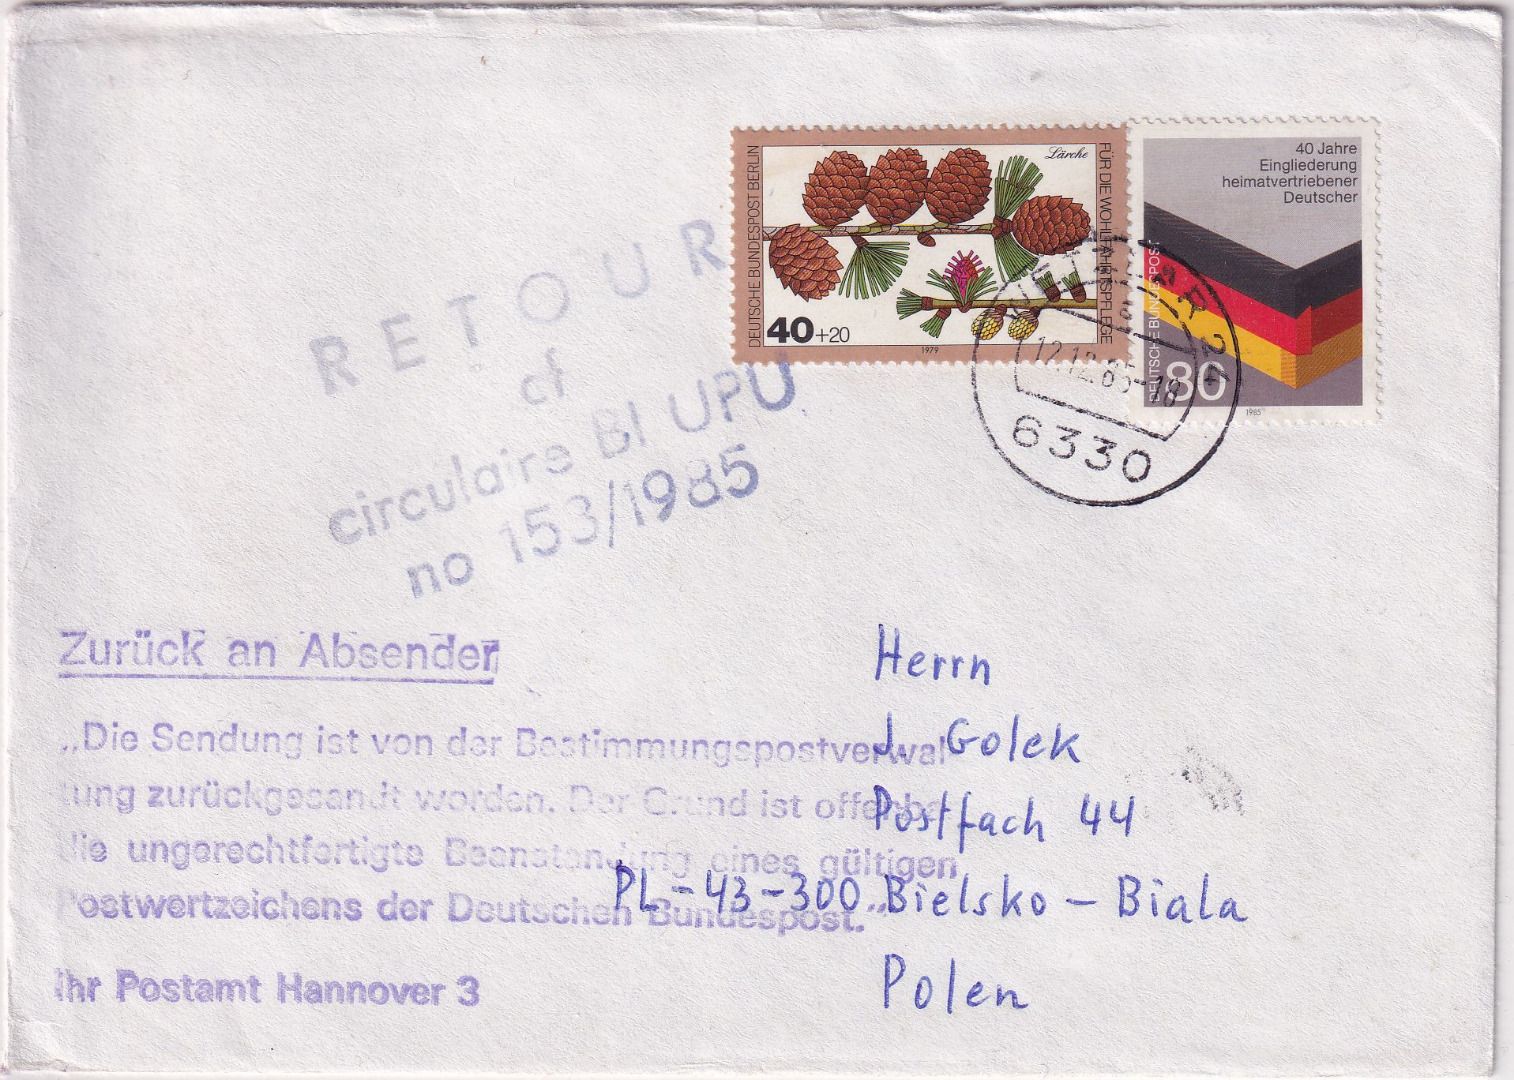 DEUTSCHE BUNDESPOST BERLIN
Lärche
FÜR DIE WOHLFAHRTSPFLEGE
40+20
1979
40 Jahre
Eingliederung
heimatvertriebener
Deutscher
DEUTSCHE BUNDESPOST
80
1985
12.12.85-18
6330
RETOUR
cf
circulaire BI UPU
no 153/1985
Zurück an Absender
„Die Sendung ist von der Bestimmungspostverwal
tung zurückgesandt worden. Der Grund ist
die ungerechtfertigte Beanstandung eines gültigen
Postwertzeichens der Deutschen Bundespost.“
Ihr Postamt Hannover 3
Herrn
J. Golek
Postfach 44
PL-43-300 Bielsko-Biala
Polen